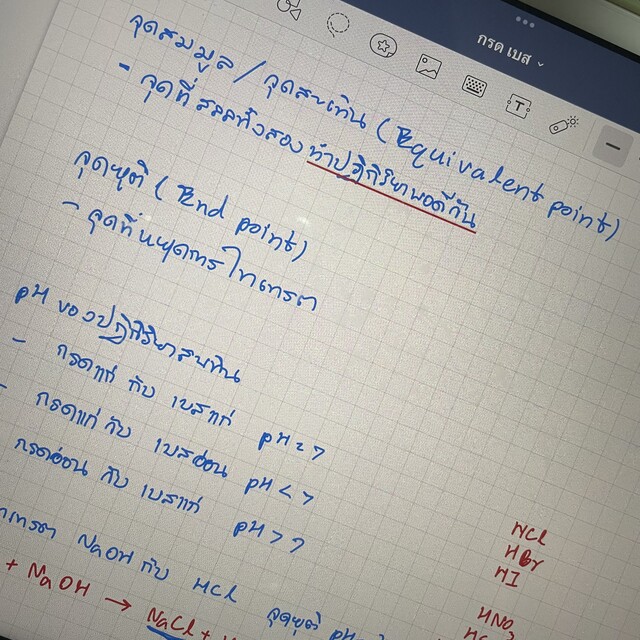 กรด เบส
จุดสมมูล / จุดสะเทิน (Equivalent point)
- จุดที่ สลลทั้งสอง ทำปฏิกิริยาพอดีกัน
จุดยุติ (End point)
- จุดที่หยุดการไทเทรต
pH ของปฏิกิริยาสะเทิน
- กรดแก่ กับ เบสแก่ pH = 7
- กรดแก่ กับ เบสอ่อน pH < 7
กรดอ่อน กับ เบสแก่ pH > 7
HCl
HBr
HI
NaOH กับ HCl จุดยุติ
HNO3
+ NaOH → NaCl +